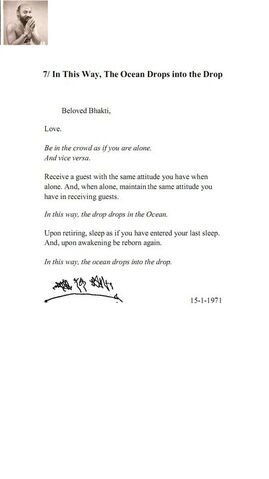 7/ In This Way, The Ocean Drops into the Drop
Beloved Bhakti,
Love.
Be in the crowd as if you are alone.
And vice versa.
Receive a guest with the same attitude you have when
alone. And, when alone, maintain the same attitude you
have in receiving guests.
In this way, the drop drops in the Ocean.
Upon retiring, sleep as if you have entered your last sleep.
And, upon awakening be reborn again.
In this way, the ocean drops into the drop.
15-1-1971